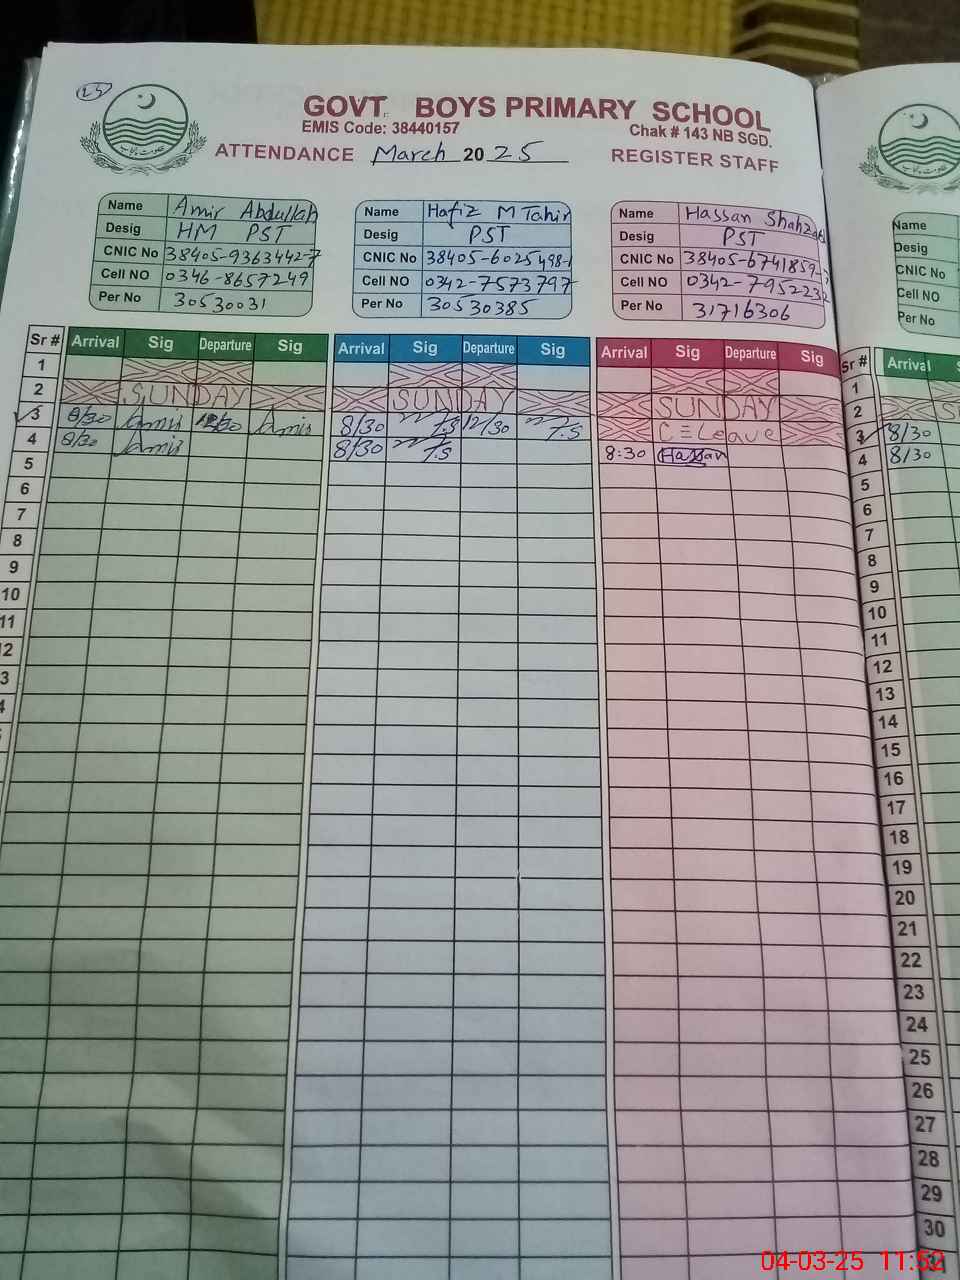 23
GOVT. BOYS PRIMARY SCHOOL
EMIS Code: 38440157
Chak # 143 NB SGD.
ATTENDANCE March 2025 REGISTER STAFF
Name Amir Abdullah
Desig HM PST
CNIC No 38405-9363442-7
Cell NO 0346-8657249
Per No 30530031
Name Hafiz M Tahir
Desig PST
CNIC No 38405-6025498-1
Cell NO 0342-7573797
Per No 30530385
Name Hassan Shahzad
Desig PST
CNIC No 38405-6741859-
Cell NO 0342-7952232
Per No 31716306
Name
Desig
CNIC No
Cell NO
Per No
Sr # Arrival Sig Departure Sig Arrival Sig Departure Sig Arrival Sig Departure Sig Sr # Arrival
1 1
2 SUNDAY SUNDAY SUNDAY 2 S
3 8/30 Amir 12/30 Amir 8/30 T.S 12/30 T.S C=Leave 3 8/30
4 8/30 Amir 8/30 T.S 8:30 Hassan 4 8/30
5 5
6 6
7 7
8 8
9 9
10 10
11 11
12 12
3 13
4 14
15
16
17
18
19
20
21
22
23
24
25
26
27
28
29
30
04-03-25 11:52